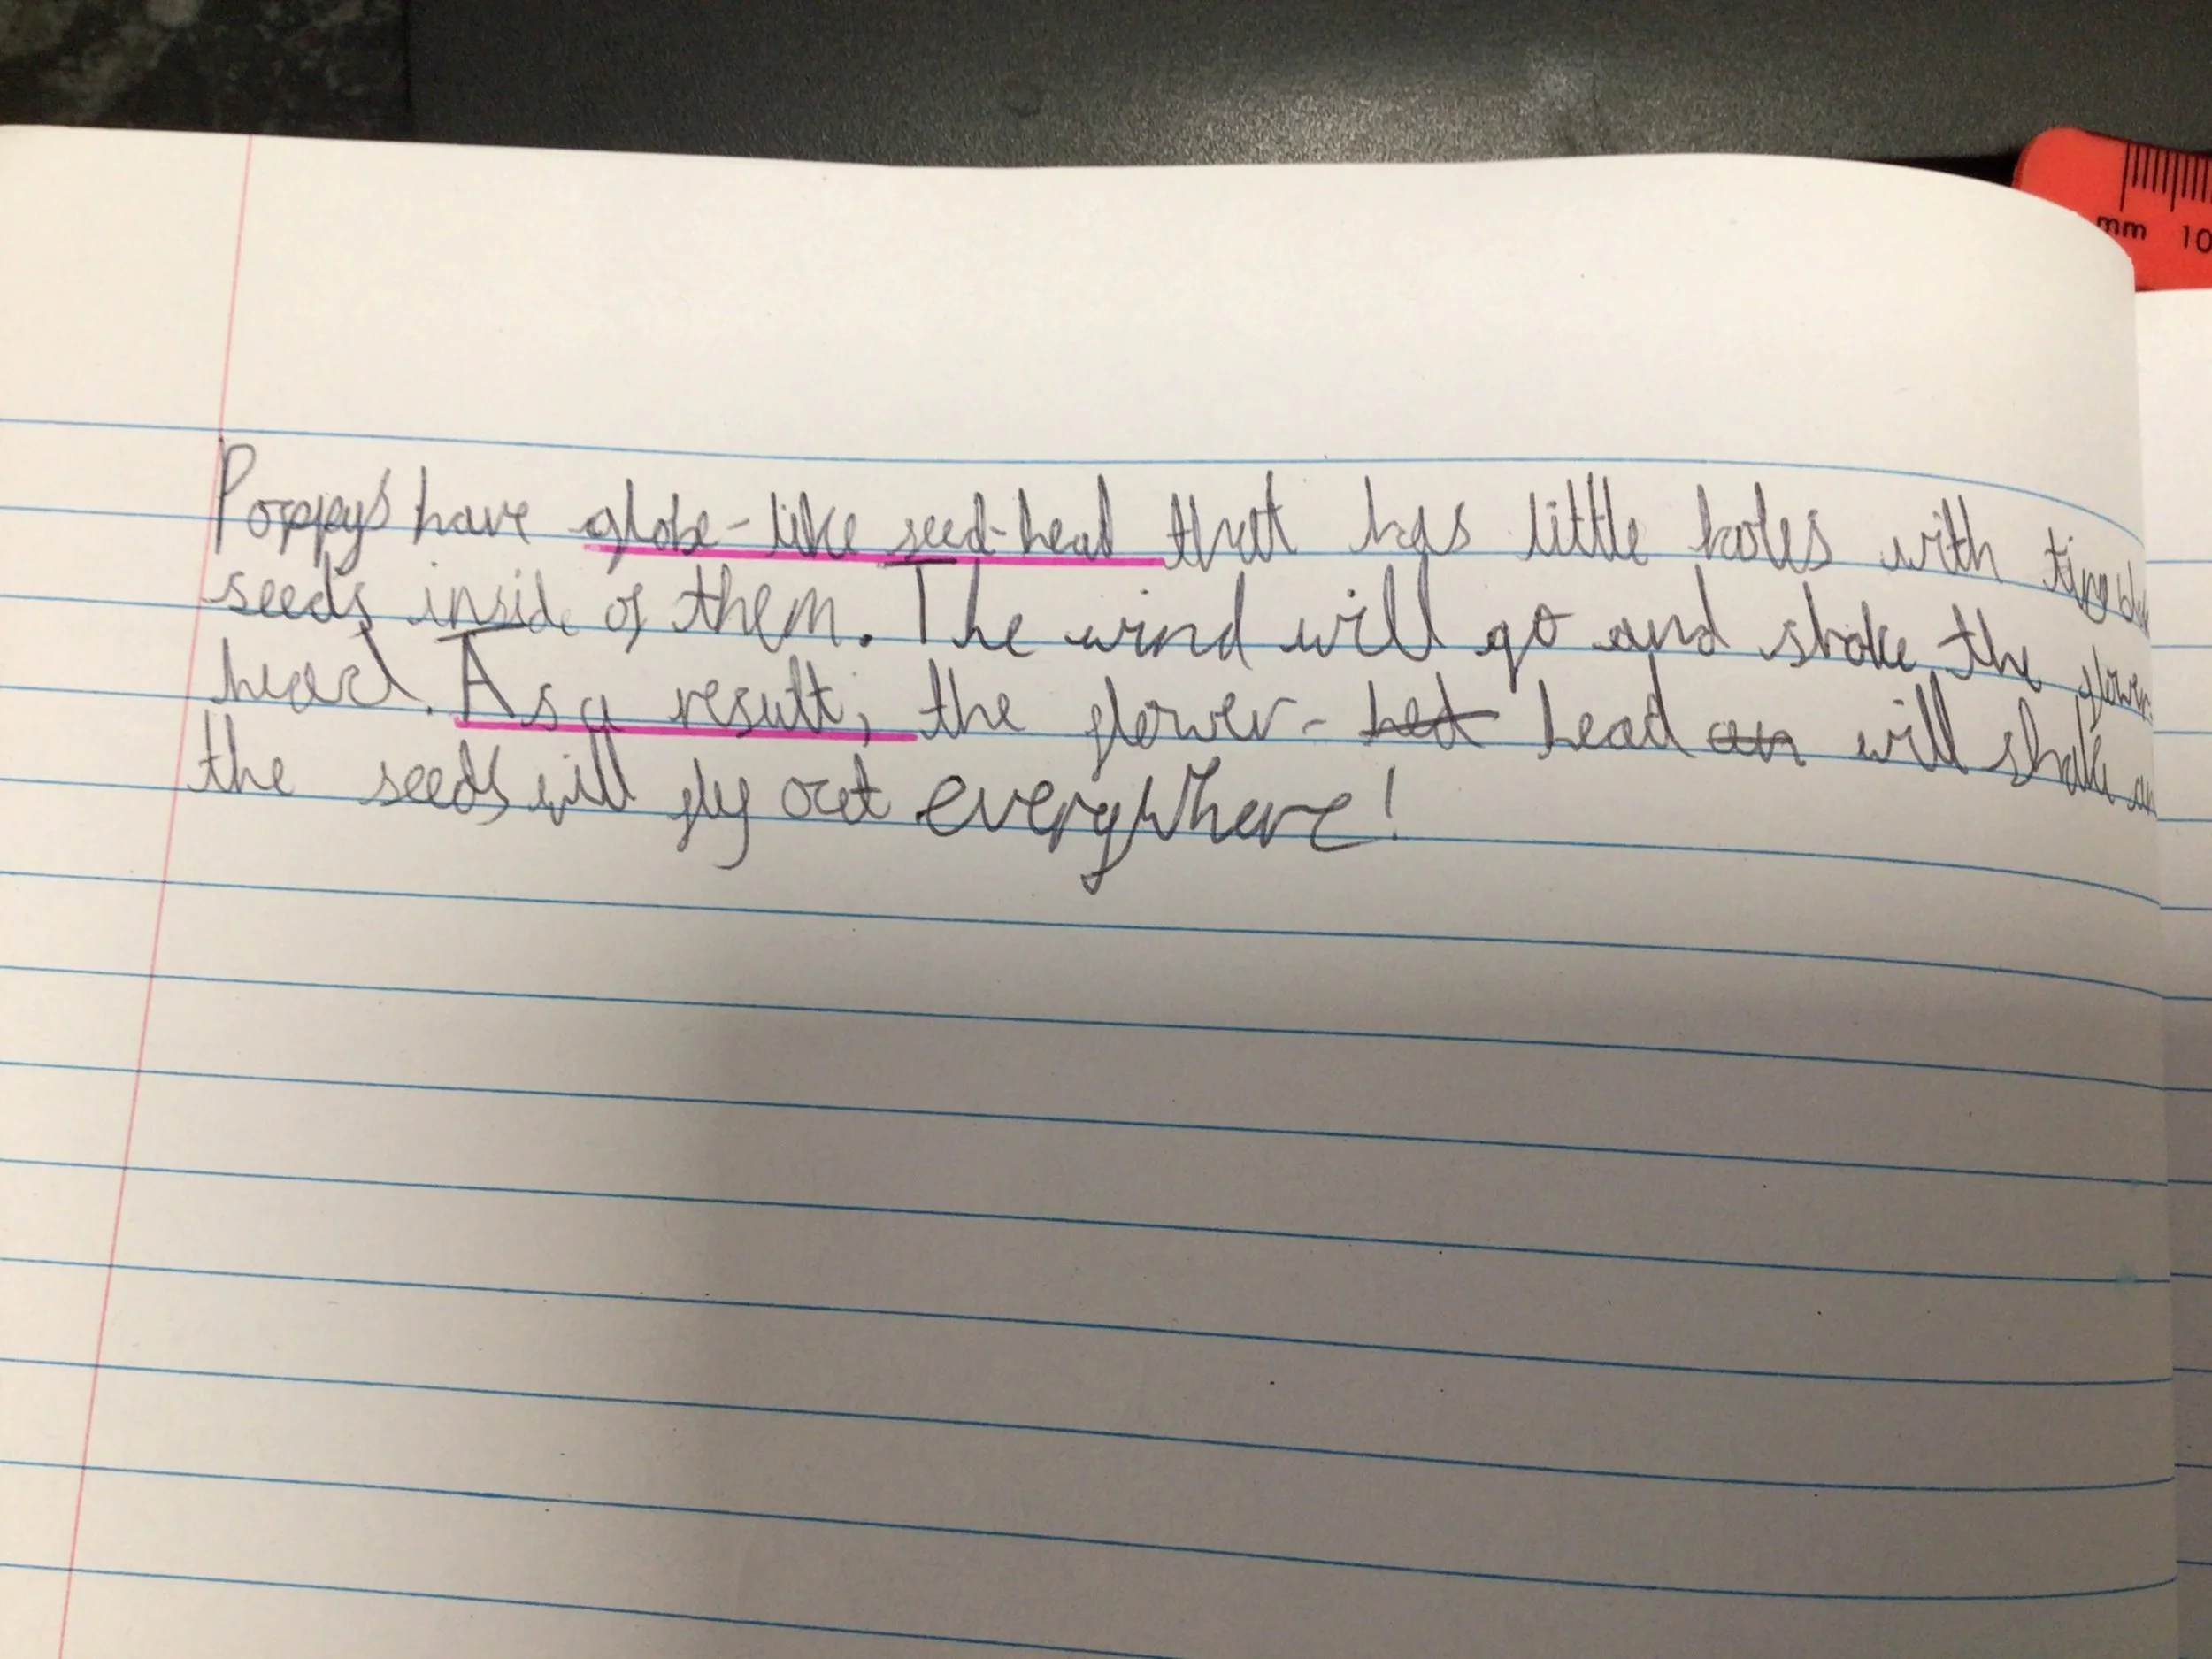 Poppys have globe-like seed-head that has little holes with tiny
seeds inside of them. The wind will go and shake the flower
head. As a result, the flower- hed head an will shake an
the seeds will fly out everywhere!
mm 10